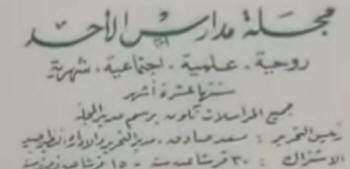 مجلة مدارس الأحد
روحية . علمية . اجتماعية . شهرية
سنتها عشرة أشهر
جميع المراسلات تكون برسم مدير المجلة
رئيس التحرير : سعد صادق . مدير التحرير والإدارة :
الاشتراك : ٣٠ قرشا ١٥ قرشا